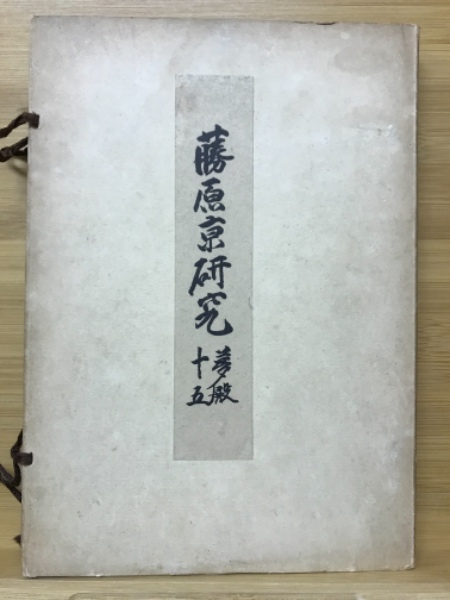 藤原京研究
夢殿
十五